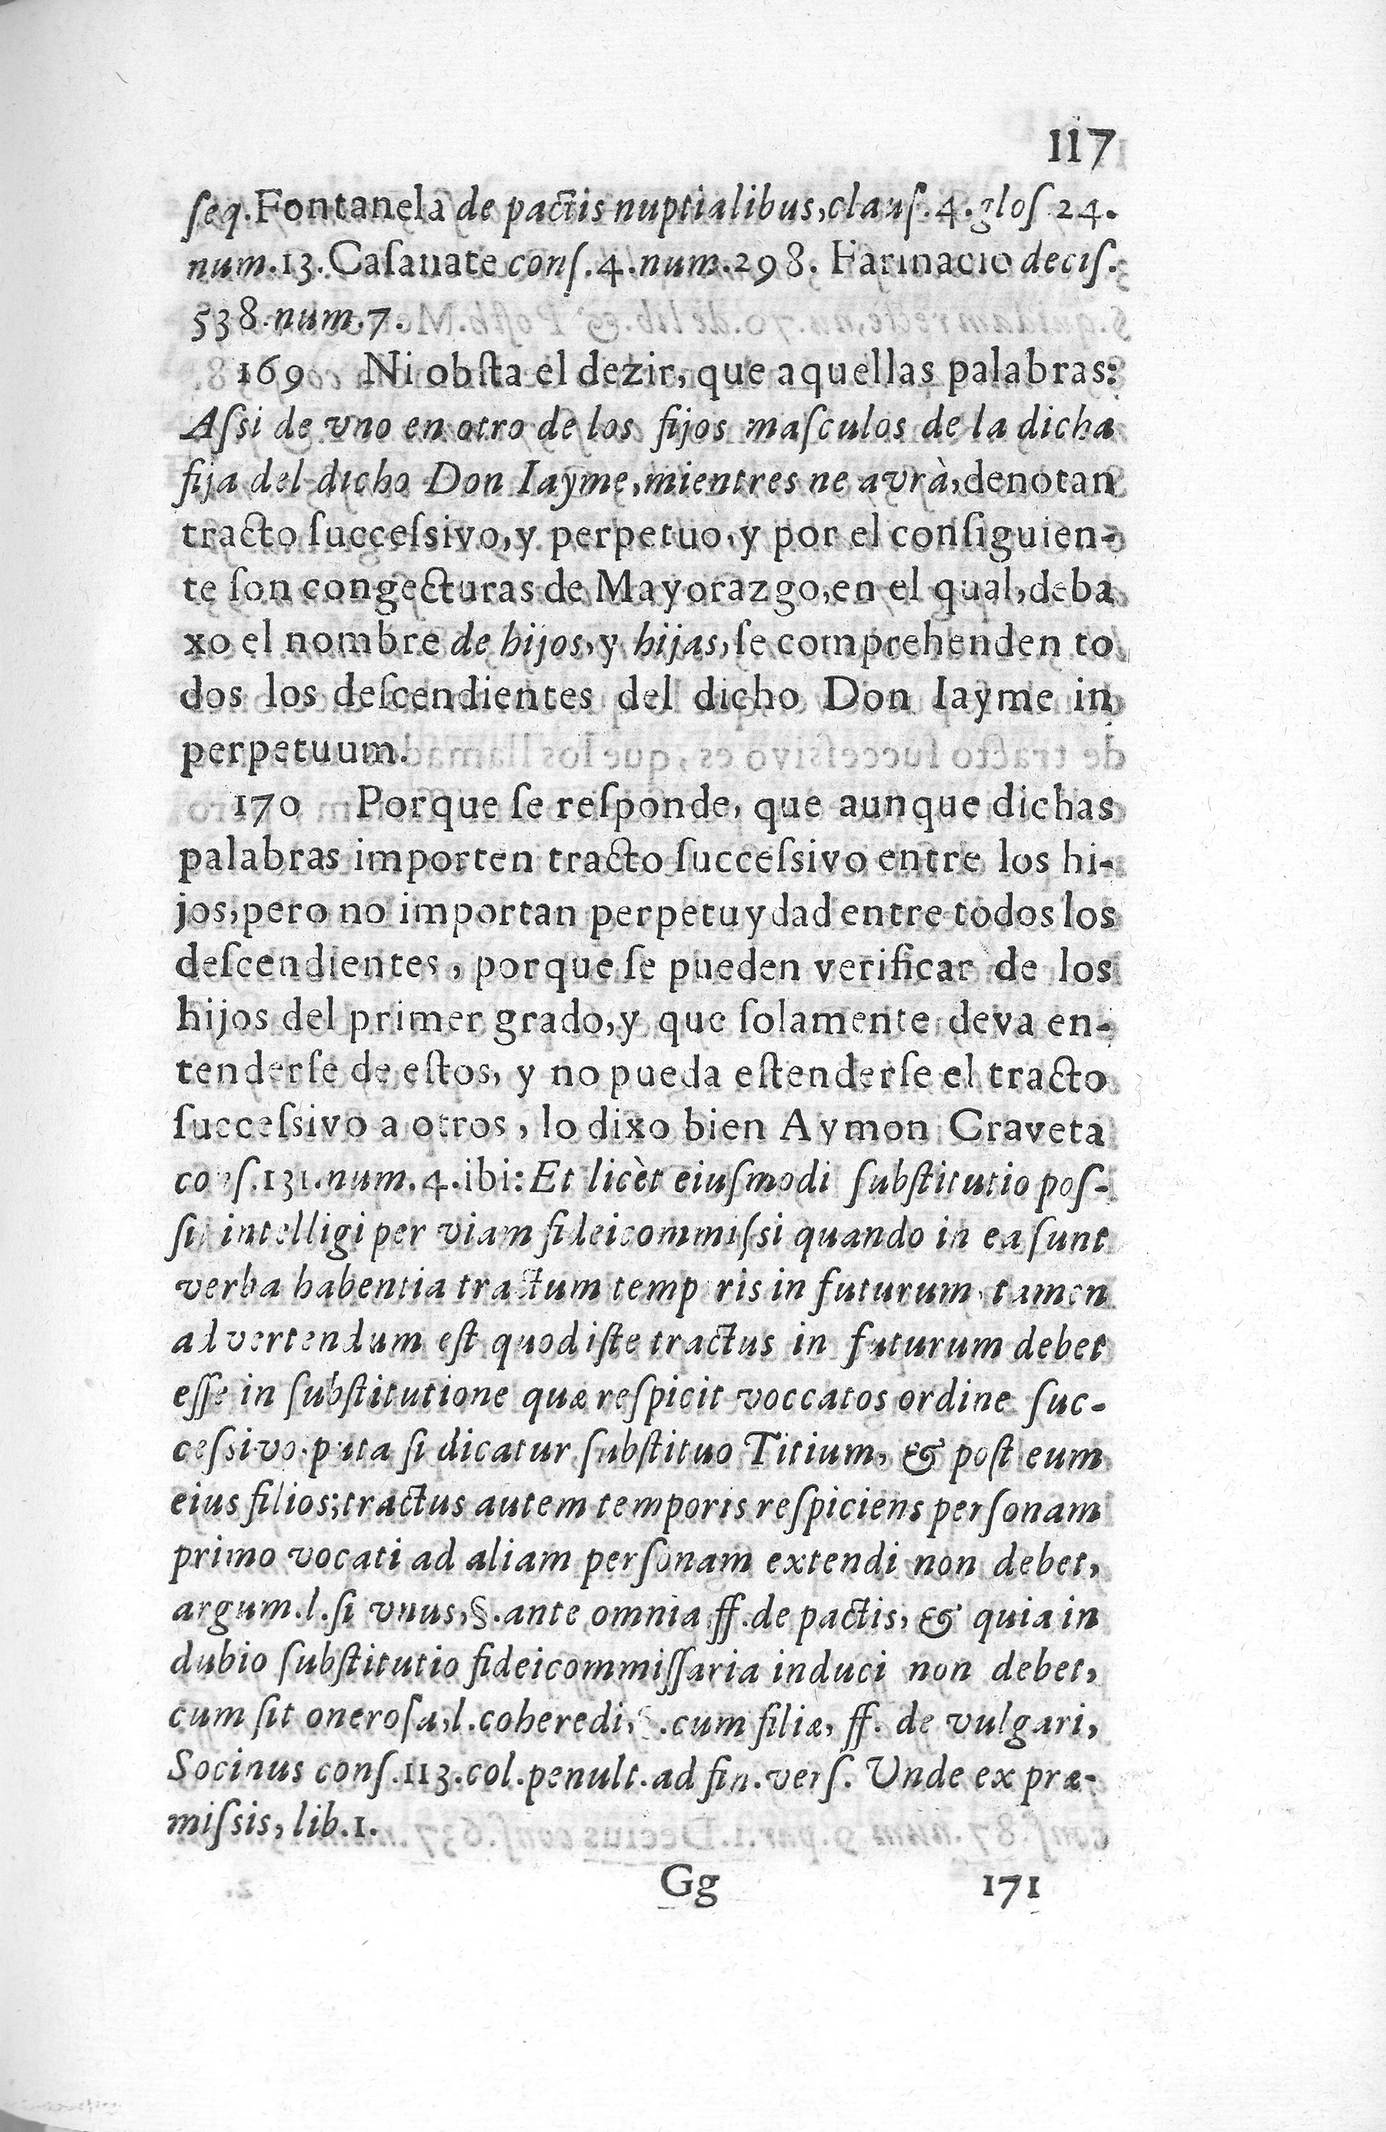 117
ſeq. Fontanela de pactis nuptialibus, clauſ. 4. gloſ 24.
num. 13. Caſanate conſ. 4. num. 298. Farinacio deciſ.
538. num. 7.
169 Ni obſta el dezir, que aquellas palabras:
Aſsi de vno en otro de los fijos maſculos de la dicha
fija del dicho Don Iayme, mientres ne avrà, denotan
tracto ſucceſsivo, y perpetuo, y por el conſiguien-
te ſon congecturas de Mayorazgo, en el qual, deba
xo el nombre de hijos, y hijas, ſe comprehenden to
dos los deſcendientes del dicho Don Iayme in
perpetuum.
170 Porque ſe reſponde, que aunque dichas
palabras importen tracto ſucceſsivo entre los hi-
jos, pero no importan perpetuydad entre todos los
deſcendientes, porque ſe pueden verificar de los
hijos del primer grado, y que ſolamente deva en-
tenderſe de eſtos, y no pueda eſtenderſe el tracto
ſucceſsivo a otros, lo dixo bien Aymon Craveta
conſ. 131. num. 4. ibi: Et licèt eiuſmodi ſubſtitutio poſ-
ſit intelligi per viam fideicommiſsi quando in ea ſunt
verba habentia tractum temporis in futurum, tamen
advertendum eſt quod iſte tractus in futurum debet
eſſe in ſubſtitutione quæ reſpicit voccatos ordine ſuc-
ceſsivo. puta ſi dicatur ſubſtituo Titium, & poſt eum
eius filios; tractus autem temporis reſpiciens perſonam
primo vocati ad aliam perſonam extendi non debet,
argum. l. ſi vnus, §. ante omnia ff. de pactis, & quia in
dubio ſubſtitutio fideicommiſſaria induci non debet,
cum ſit oneroſa, l. coheredi, §. cum filiæ, ff. de vulgari,
Socinus conſ. 113. col. penult. ad fin. verſ. Unde ex præ-
miſsis, lib. 1.
Gg 171